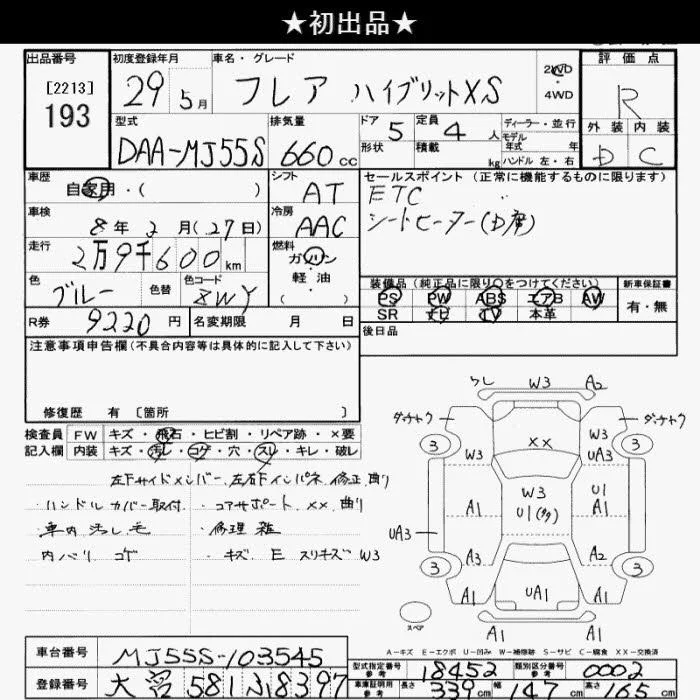 ★初出品★
出品番号
[2213]
193
初度登録年月
29 5月
車名・グレード
フレア ハイブリットXS
2WD
・
4WD
評価点
R
外装 内装
D C
型式
DAA-MJ55S
排気量
660cc
ドア 5
形状
定員 4 人
積載 kg
ディーラー・並行
モデル
年式 年
ハンドル 左・右
車歴
自家用・( )
シフト
AT
車検
8年2月(27日)
冷房
AAC
走行
2万9千600km
燃料
ガソリン
軽油
( )
色
ブルー
色替
色コード
ZWY
R券 9220円
名変期限 月 日
セールスポイント (正常に機能するものに限ります)
ETC
シートヒーター(D席)
装備品(純正品に限り○をつけてください)
PS PW ABS エアB AW
SR ナビ TV 本革
新車保証書
有・無
後日品
注意事項申告欄(不具合内容等は具体的に記入して下さい)
修復歴 有 〔箇所 〕
検査員
記入欄
FW キズ・飛石・ヒビ割・リペア跡・×要
内装 キズ・汚レ・コゲ・穴・スレ・キレ・破レ
左Fサイドメンバー、左右Fインパネ 修正、曲り
・ハンドルカバー取付 ・コアサポート ××、曲り
・車内汚し毛 ・修理 雑
内バリ コゲ ・キズ E スリキズ W3
W3 A2
ダンチトウ ダンチトウ
3 W3 ×× W3 UA3 3
W3 U1(多)
A1 U1 A1
UA3
A3 A2
3 UA1 3
A1 A1
A1 A1
スペア
A-キズ E-エクボ U-凹み W-補修跡 S-サビ C-腐食 XX-交換済
車台番号 MJ55S-103545
登録番号 大宮 581 ふ 8397
型式指定番号
参考
18452
類別区分番号
参考
0002
車庫証明用
参考
長さ 339cm 幅 147cm 高さ 165cm